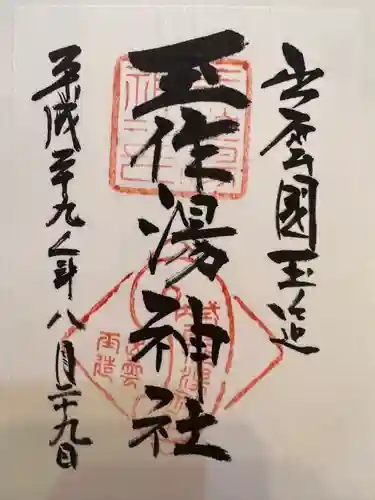 出雲國玉造
玉作湯神社
平成二十九年八月二十九日
出雲
玉造